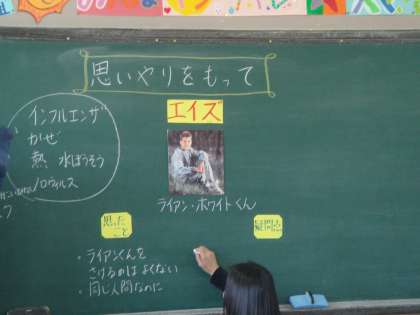 思いやりをもって
エイズ
インフルエンザ
かぜ
熱 水ぼうそう
ノロウィルス
ライアン・ホワイトくん
思った
こと
疑問点
・ライアンくんを
さけるのはよくない
・同じ人間なのに